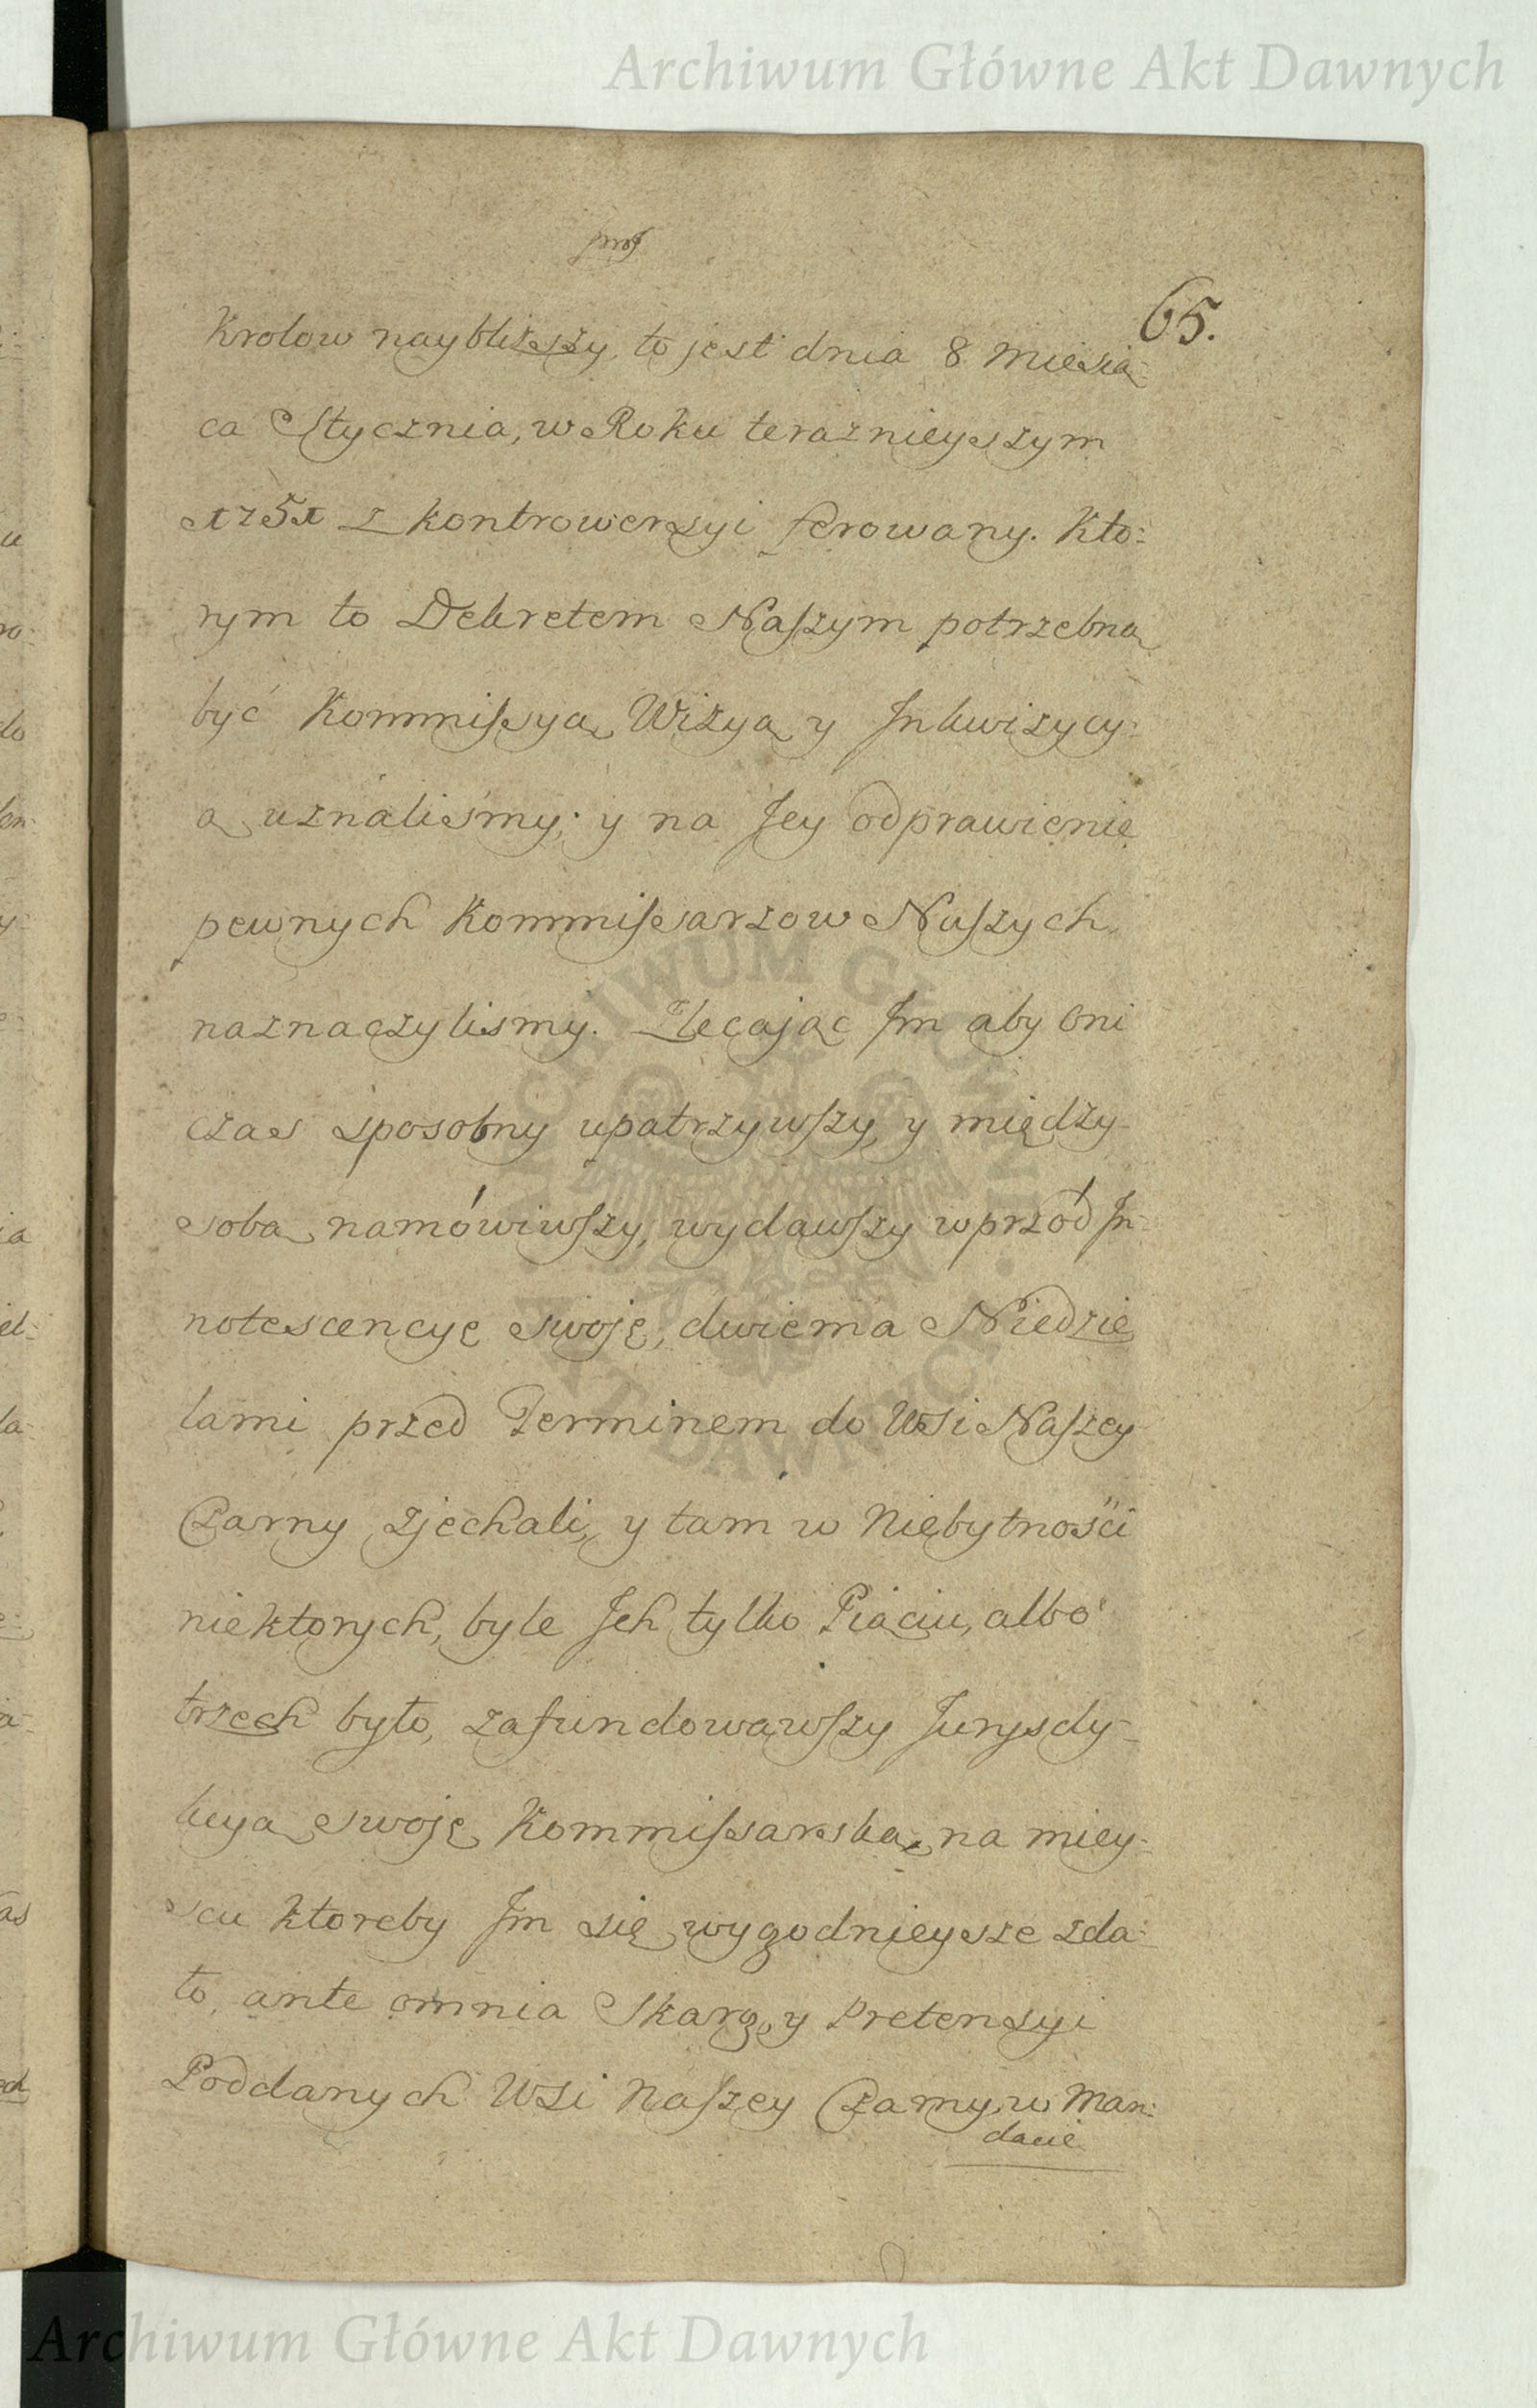 Archiwum Główne Akt Dawnych
65.
Krolow naybliższy, to jest dnia 8 Miesią-
ca Stycznia, w Roku teraznieyszym
1751 z kontrowersyi ferowany. Kto:
rym to Dekretem Naszym potrzebną
być Kommissyą, Wizyą y Inkwizycy:
ą uznaliśmy; y na Jey odprawienie
pewnych Kommissarzow Naszych
naznaczylismy. Zlecając Im aby Oni
czas sposobny upatrzywszy, y między
sobą namówiwszy, wydawszy wprzód In-
notescencyę swoję, dwiema Niedzie
lami przed Terminem do Wsi Naszey
Czarny zjechali, y tam w Niebytności
niektorych, byle Ich tylko Piąciu, albo
trzech było, zafundowawszy Jurysdy-
kcyą swoję Kommissarską, na miey:
scu ktoreby Im się wygodnieysze zda:
ło, ante omnia Skarg, y Pretensyi
Poddanych Wsi Naszey Czarny, w Man:
dacie
ARCHIWUM GŁÓWNE AKT DAWNYCH
Archiwum Główne Akt Dawnych